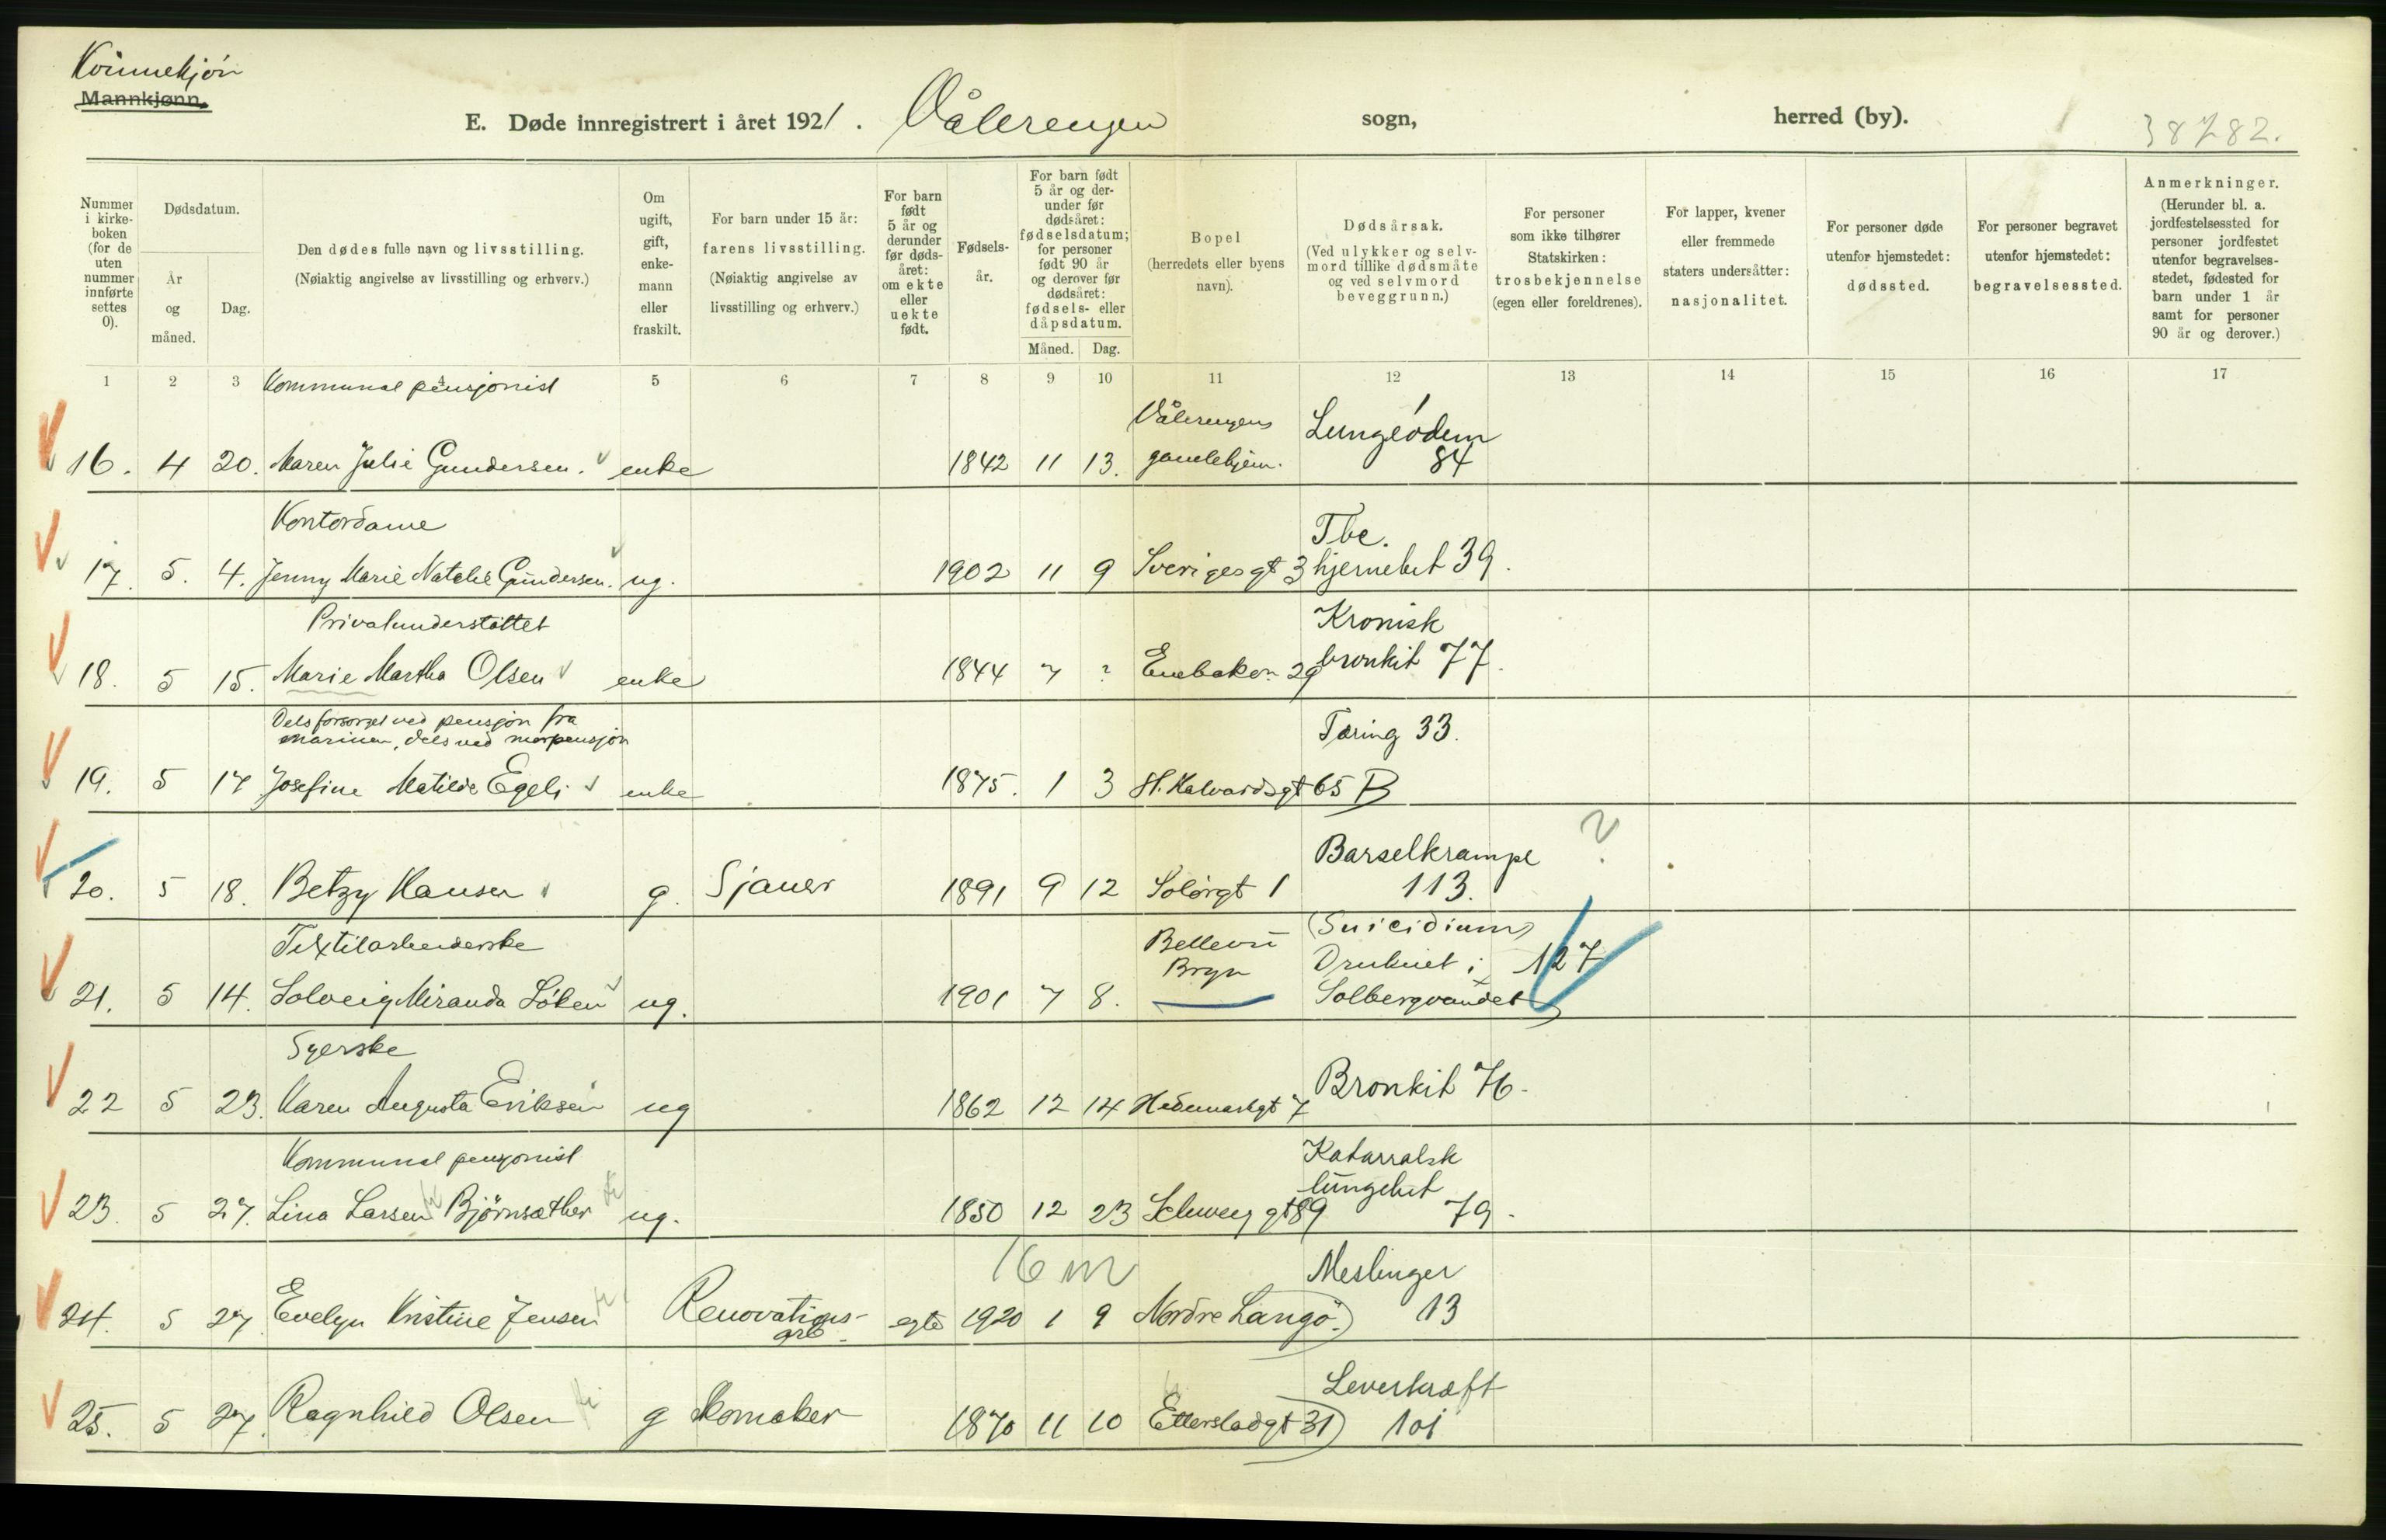 Kvinnekjøn
Mannkjønn.
E. Døde innregistrert i året 1921. Vålerengen sogn, herred (by). 38782.
Nummer i kirkeboken (for de uten nummer innførte settes 0).
Dødsdatum.
År og måned.
Dag.
Den dødes fulle navn og livsstilling.
(Nøiaktig angivelse av livsstilling og erhverv.)
Om ugift, gift, enkemann eller fraskilt.
For barn under 15 år: farens livsstilling.
(Nøiaktig angivelse av livsstilling og erhverv.)
For barn født 5 år og derunder før dødsåret: om ekte eller uekte født.
Fødselsår.
For barn født 5 år og derunder før dødsåret: fødselsdatum; for personer født 90 år og derover før dødsåret: fødsels- eller dåpsdatum.
Måned. Dag.
Bopel (herredets eller byens navn).
Dødsårsak.
(Ved ulykker og selvmord tillike dødsmåte og ved selvmord beveggrunn.)
For personer som ikke tilhører Statskirken: trosbekjennelse (egen eller foreldrenes).
For lapper, kvener eller fremmede staters undersåtter: nasjonalitet.
For personer døde utenfor hjemstedet: dødssted.
For personer begravet utenfor hjemstedet: begravelsessted.
Anmerkninger.
(Herunder bl. a. jordfestelsessted for personer jordfestet utenfor begravelsesstedet, fødested for barn under 1 år samt for personer 90 år og derover.)
1 2 3 4 5 6 7 8 9 10 11 12 13 14 15 16 17
Kommunal pensjonist
16. 4 20. Maren Julie Gundersen. enke 1842 11 13. Vålerengens gamlehjem. Lungeødem 84
Kontordame
17. 5. 4. Jenny Marie Natalie Gundersen. ug. 1902 11 9 Sverigesgt 3 Tbc. hjernebet 39.
Privatunderstøttet
18. 5 15. Marie Martha Olsen enke 1844 7 ? Enebakvn 29 Kronisk bronkit 77.
Dels forsørget ved pensjon fra
marinen, dels ved morpensjon
19. 5 17 Josefine Matilde Egeli enke 1875. 1 3 St. Halvardsgt 65 B Tæring 33.
20. 5 18. Betzy Hansen g. Sjauer 1891 9 12 Solørgt 1 Barselkrampe 113. ?
Textilarbeiderske
21. 5 14. Solveig Miranda Løken ug. 1901 7 8. Bellevu Bryn (Suicidium) Druknet i Solbergvandet 127
Syerske
22 5 23. Karen Augusta Eriksen ug 1862 12 14 Hedemarkgt 7 Bronkit 76.
Kommunal pensjonist
23. 5 27. Lina Larsen Bjørnsæther ug. 1850 12 23 Schweig gt 89 Katarralsk lungebet 79.
16 m
24. 5 27. Evelyn Kristine Jensen Renovations- arb. egte 1920 1 9 Nordre Langø. Meslinger 13
25. 5 27. Ragnhild Olsen g Skomaker 1870 11 10 Etterstadgt 31 Leverkræft 101